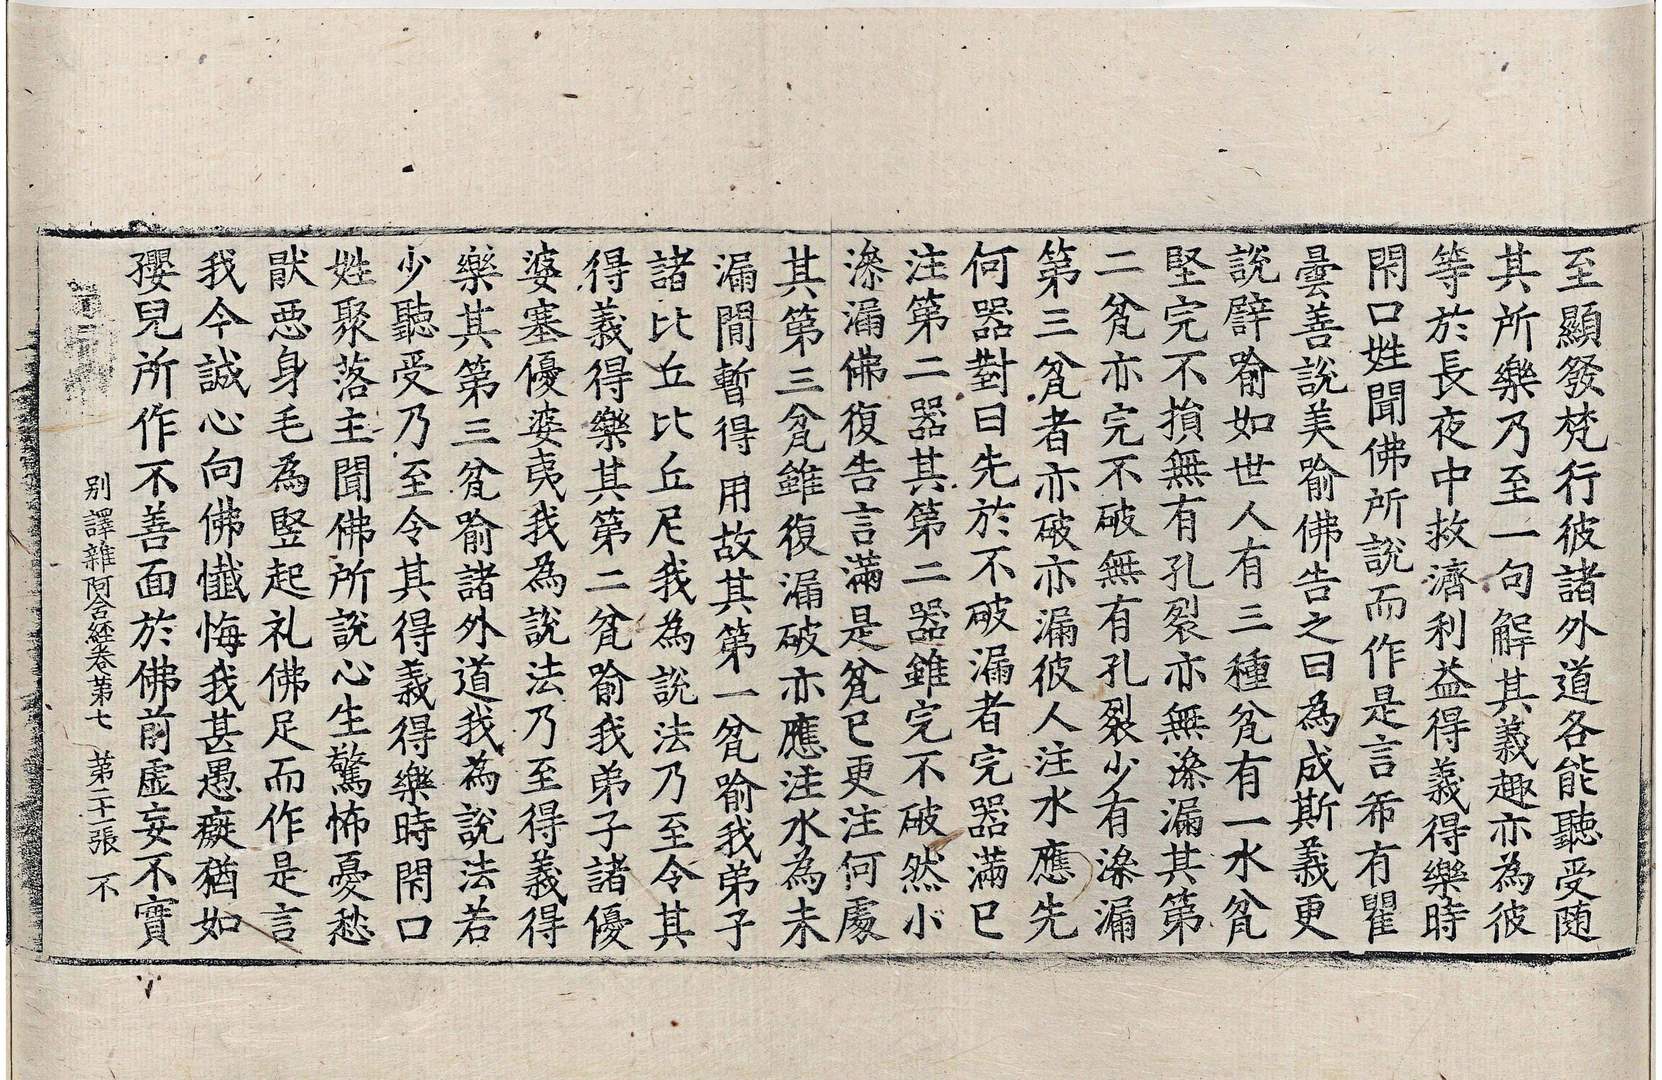 至顯發梵行彼諸外道各能聽受随
其所樂乃至一句解其義趣亦為彼
等於長夜中救濟利益得義得樂時
閇口姓聞佛所說而作是言希有瞿
曇善說美喻佛告之曰為成斯義更
說譬喻如世人有三種瓮有一水瓮
堅完不損無有孔裂亦無㵕漏其第
二瓮亦完不破無有孔裂少有㵕漏
第三瓮者亦破亦漏彼人注水應先
何器對曰先於不破漏者完器滿已
注第二器其第二器雖完不破然小
㵕漏佛復告言滿是瓮已更注何處
其第三瓮雖復漏破亦應注水為未
漏閒暫得用故其第一瓮喻我弟子
諸比丘比丘尼我為說法乃至令其
得義得樂其第二瓮喻我弟子諸優
婆塞優婆夷我為說法乃至得義得
樂其第三瓮喻諸外道我為說法若
少聽受乃至令其得義得樂時閇口
姓聚落主聞佛所說心生驚怖憂愁
猒惡身毛為竪起礼佛足而作是言
我今誠心向佛懺悔我甚愚癡猶如
孾兒所作不善面於佛前虛妄不實
别譯雜阿含経卷第七 第二十一張 不